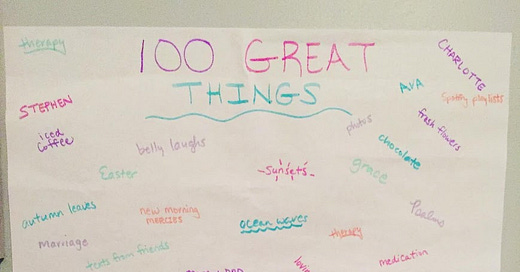 therapy
100 GREAT
THINGS
CHARLOTTE
STEPHEN
AVA
Spotify playlists
iced
coffee
belly laughs
photos
fresh flowers
chocolate
Easter
-sunsets-
grace
autumn leaves
new morning
mercies
ocean waves
therapy
Psalms
Marriage
texts from friends
medication